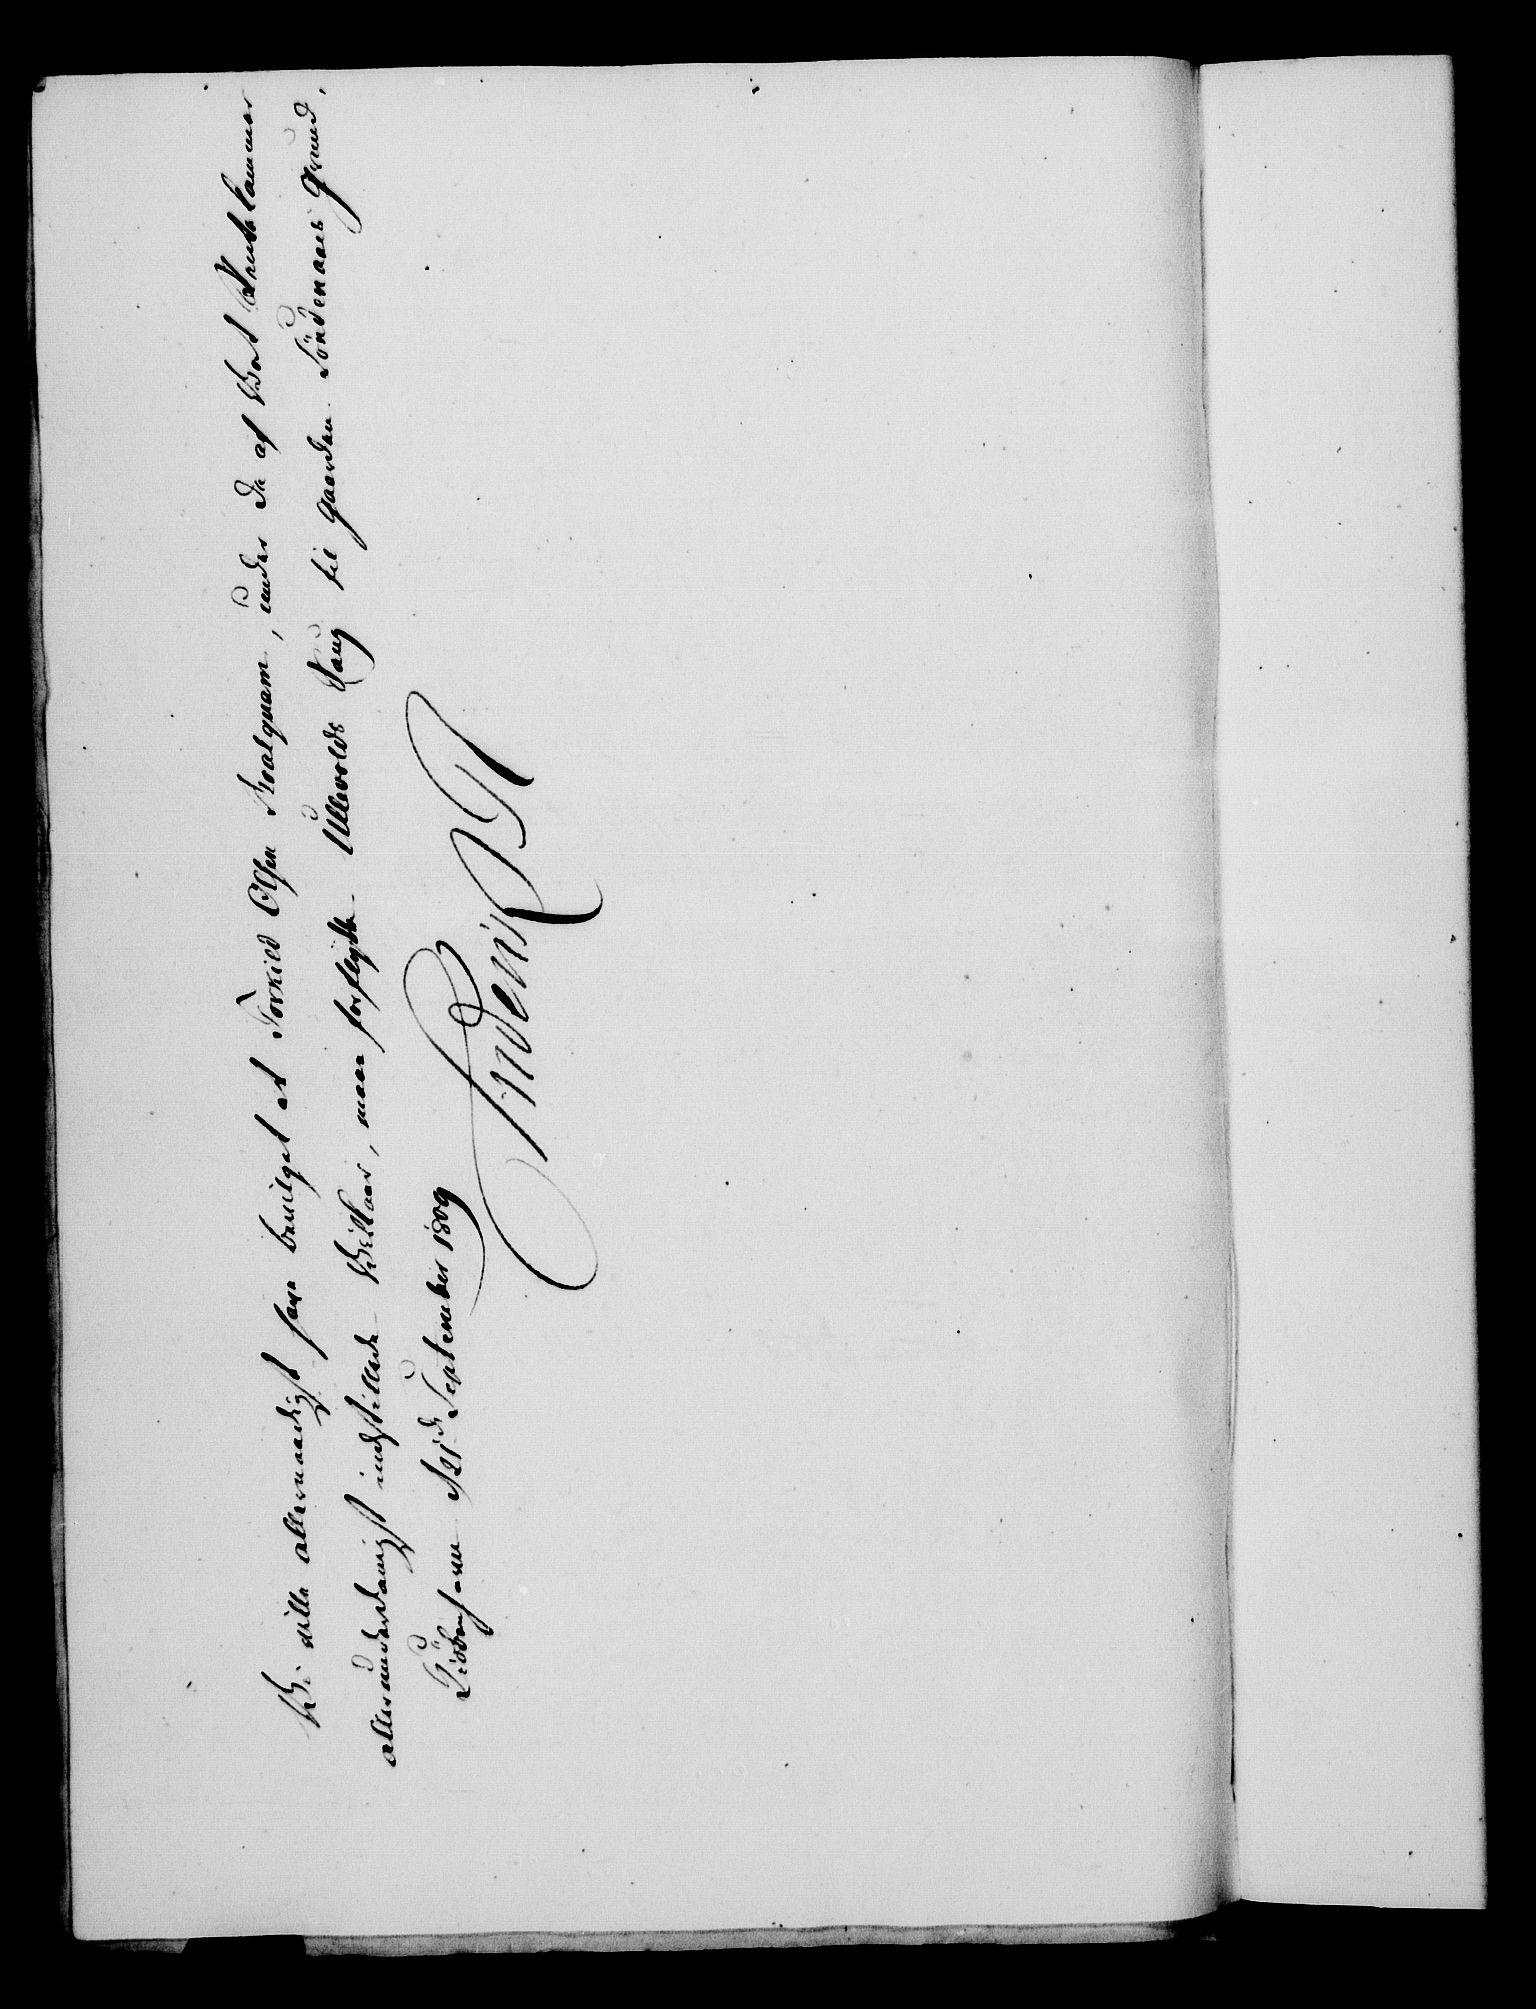 Vi ville allernaadigst have bevilget at Torkild Olsen Kvalquam, under de af Vort Rentekammer
allerunderdanigst indstillede Vilkaar, maae forflytte Ullevolds Saug til Gaarden Söndenaaes Grund.
Kiöbenhavn d 21de September 1809
Frideric R